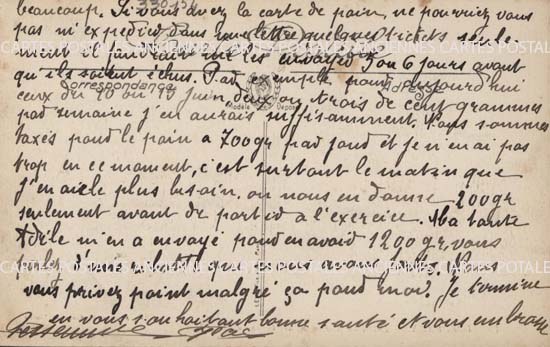 beaucoup. Si vous avez la carte de pain, ne pourriez vous
pas m'expedier dans une lettre quelques tickets seule
ment il faudrait me les envoyer 5 ou 6 jours avant
qu'ils soient échus. Par exemple pour aujourd'hui
ceux du 10 ou 11 juin deux ou trois de cent grammes
par semaine j'en aurais suffisamment. Nous sommes
taxés pour le pain a 700gr par jour et je n'en ai pas
trop en ce moment, c'est surtout le matin que
j'en ai le plus besoin, on nous en donne 200gr
seulement avant de partir a l'exercice. Ma tante
Adèle m'en a envoyé pour en avoir 1200gr, vous
que vous
vous privez point malgré ça pour moi. Je termine
en vous souhaitant bonne santé et vous embrasse
Correspondance
Adresse
Modèle Déposé
CARTES POSTALES ANCIENNES